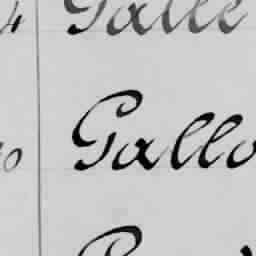 4 Galle
10 Gallo